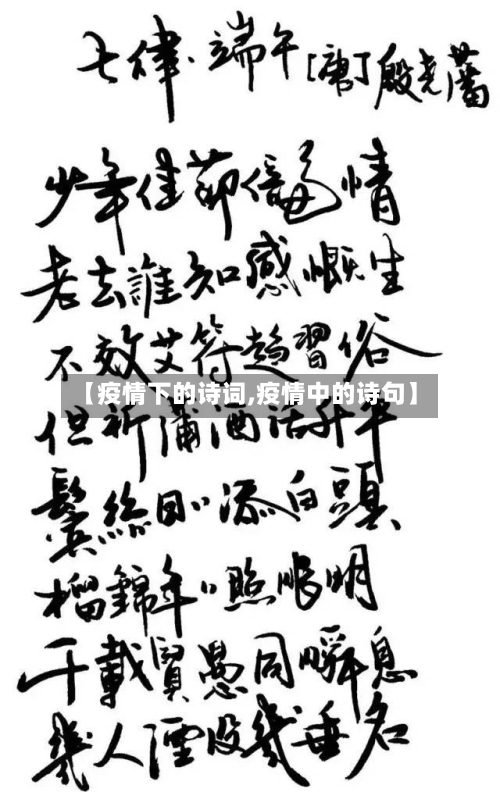 七律·端午[唐]殷尧藩
少年佳節倍多情
老去誰知感慨生
不效艾符趨習俗
【疫情下的诗词,疫情中的诗句】
但祈蒲酒話升平
鬓絲日〃添白頭
榴錦年〃照眼明
千載賢愚同瞬息
幾人湮没幾垂名